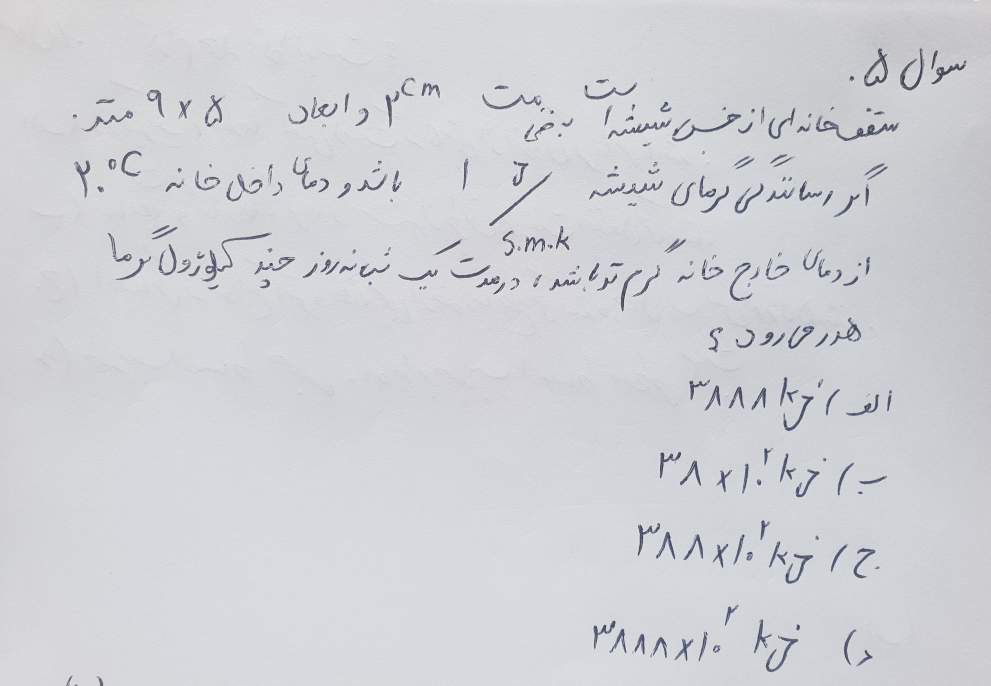 سوال ۵.
سقف خانه ای از جنس شیشه است به ضخامت ۲cm و ابعاد ۵ × ۹ متر.
اگر رسانندگی گرمای شیشه ۱ J/s.m.k باشد و دمای داخل خانه ۲۰°C
از دمای خارج خانه گرم تر باشد، در مدت یک شبانه روز چند کیلوژول گرما
هدر می رود؟
الف) ۳۸۸۸ kj
ب) ۳۸ × ۱۰^۲ kj
ج) ۳۸۸ × ۱۰^۲ kj
د) ۳۸۸۸ × ۱۰^۲ kj